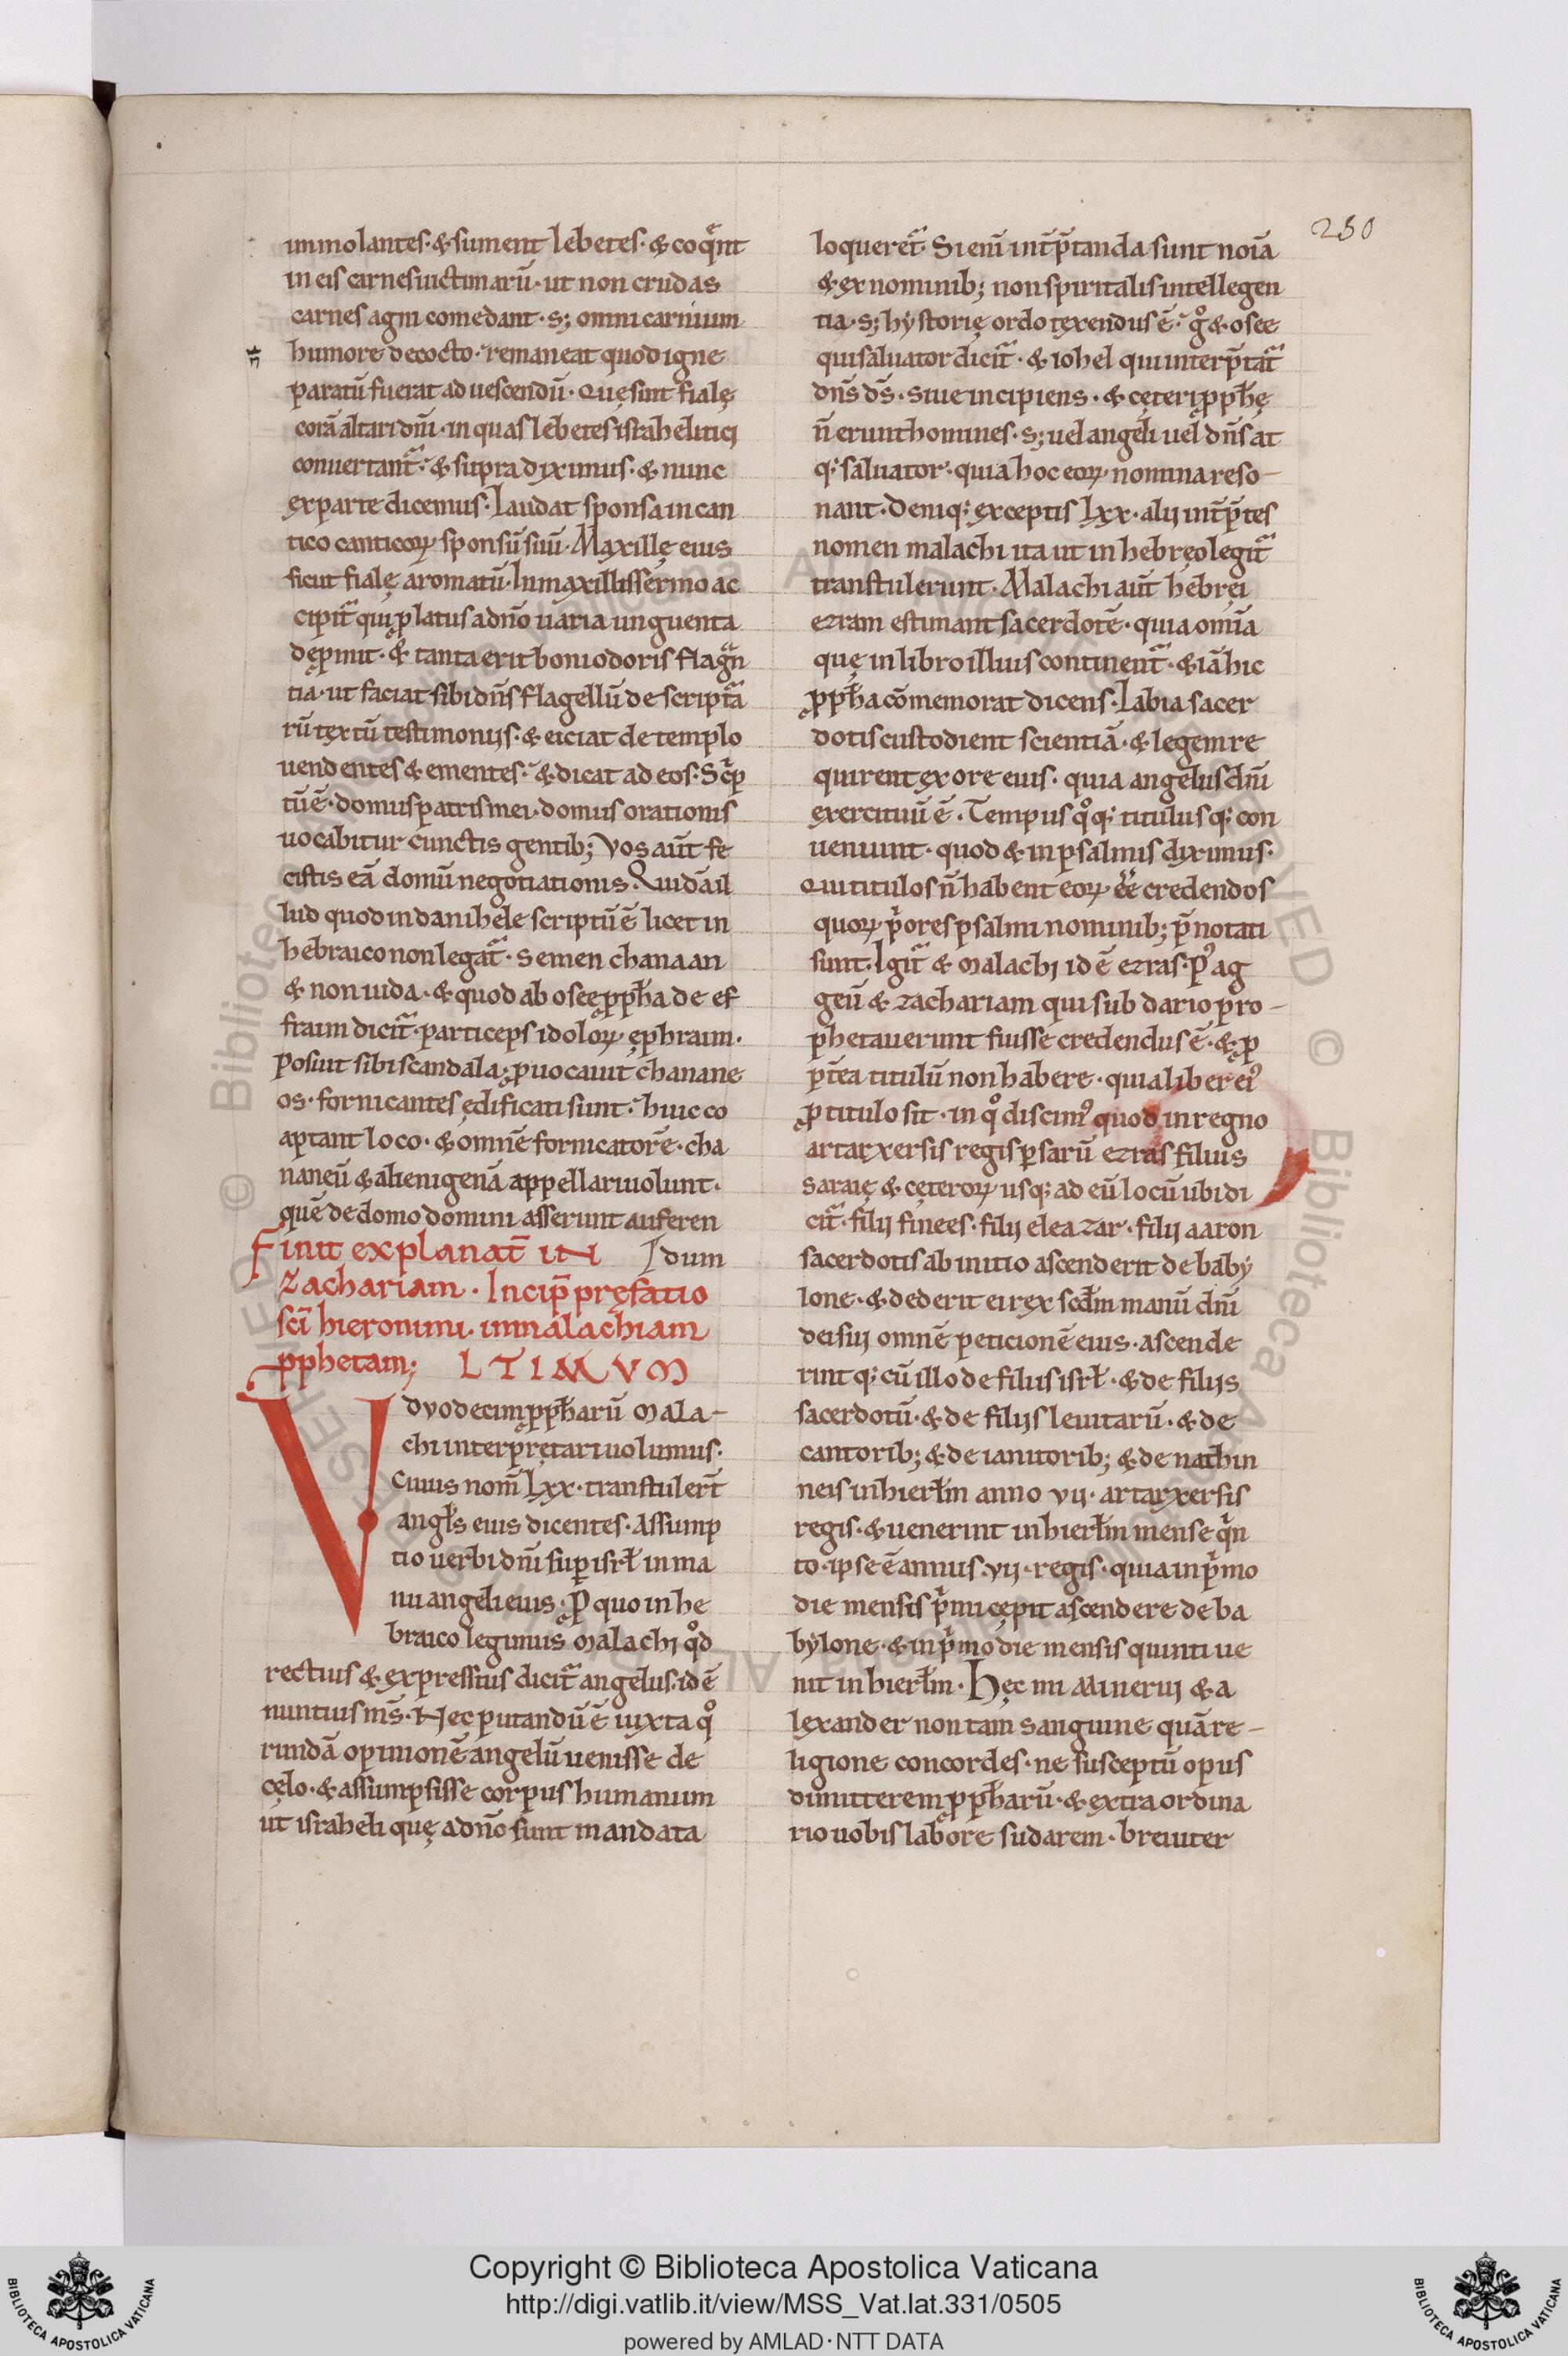 250
immolantes·&sument lebetes·&coq̃nt
in eis carnes uictimarū·ut non crudas
carnes agni comedant·s; omni carnium
humore decocto·remaneat quod igne
paratū fuerat ad uescendū·Quę sint fialę
corā altari dn̄i·in quas lebetes israhelitici
conuertant᷑·&supra diximus·& nunc
ex parte dicemus·Laudat sponsa in can
tico canticoꝝ sponsū suū·Maxillę eius
sicut fialę aromatū·In maxillis sermo ac
cipit᷑ qui ꝓlatus a dn̄o uaria unguenta
dep̱mit·& tanta erit boni odoris flagᷓn
tia·ut faciat sibi dn̄s flagellū de scriptᷓa
rū textū testimoniis·& eiciat de templo
uendentes & ementes·& dicat ad eos·Scͥp
tū ē·domus patris mei·domus orationis
uocabitur cunctis gentib; Vos aūt fe
cistis eā domū negotiationis·Quidā il
lud quod in danihele scriptū ē licet in
hebraico non legat᷑·semen chanaan
& non iuda·& quod ab osee ꝓph̄a de ef
fraim dicit᷑·particeps idoloꝝ·ephraim·
Posuit sibi scandala·ꝓuocauit chanane
os·fornicantes ędificati sunt·huic co
aptant loco·& omnē fornicatorē·cha
naneū & alienigenā appellari uolunt·
quē de domo domini asserunt auferen
dum
Finit explanat̄ in
Zachariam·Incip̄ pręfatio
sc̄i hieronimi·in malachiam
ꝓphetam;
VLTIMVM
dvodecim ꝓph̄arū Mala-
chi interpretari uolumus·
Cuius nom̄ Lxx·transtuler̄t
angl̄s eius dicentes·Assump
tio uerbi dn̄i sup̱ isrł in ma
nu angeli eius·Ꝓ quo in he
braico legimus malachi qͦd
rectius & expressius dicit᷑ angelus·id ē
nuntius m̄s·Nec putandū ē iuxta qͦ
rundā opinionē angelū uenisse de
cęlo·& assumpsisse corpus humanum
ut israheli quę a dn̄o sunt mandata
loqueret᷑·Si enī int̄p̄tanda sunt noīa
& ex nominib; non spiritalis intellegen
tia·s; hẏstorię ordo texendus ē·gͦ & osee
qui saluator dicit᷑·& iohel qui interp̄tat᷑
dn̄s d̄s·siue incipiens·& cęteri ꝓph̄ę
n̄ erunt homines·s; uel angeli uel dn̄s at
q; saluator·quia hoc eoꝝ nomina reso-
nant·Deniq; exceptis Lxx·alij int̄p̄tes
nomen malachi ita ut in hebręo legit᷑
transtulerunt·Malachi aūt hebręi
ezram estimant sacerdotē·quia omīa
quę in libro illius continent᷑·&iā hic
ꝓph̄a cōmemorat dicens·Labia sacer
dotis custodient scientiā·& legem re
quirent ex ore eius·quia angelus dn̄i
exercituū ē·Tempus qͦq; titulus q; con
ueniunt·quod & in psalmis diximus·
Qui titulos n̄ habent eoꝝ ēē credendos
quoꝝ pͥores psalmi nominib; p̄notati
sunt·Igit᷑ & malachi id ē ezras·p⁹ ag
geū & zachariam qui sub dario pro-
phetauerunt fuisse credendus ē·& ꝓ
pt̄ea titulū non habere·quia liber ei⁹
ꝓ titulo sit·in qͦ discim⁹ quod in regno
artarxersis regis p̱sarū ezras filius
saraię & cęteroꝝ usq; ad eū locū ubi di
cit᷑·filij finees·filij eleazar·filij aaron
sacerdotis ab initio ascenderit de babẏ
lone·& dederit ei rex scd̄m manū dn̄i
dei sui omnē peticionē eius·ascende
rint q; cū illo de filiis isrł·& de filijs
sacerdotū·& de filijs leuitarū·& de
cantorib; & de ianitorib; & de nathin
neis in hierłm anno vij·artarxersis
regis·& uenerint in hierłm mense qͥn
to·ipse ē annus·vij·regis·quia in pͥmo
die mensis pͥmi cepit ascendere de ba
bẏlone·& in pͥmo die mensis quinti ue
nit in hierłm·Hęc mi Mineruj & a
lexander non tam sanguine quā re-
ligione concordes·ne susceptū opus
dimitterem ꝓph̄arū·& extra ordina
rio uobis labore sudarem·breuiter
© Biblioteca Apostolica Vaticana ALL RIGHTS RESERVED
Copyright © Biblioteca Apostolica Vaticana
http://digi.vatlib.it/view/MSS_Vat.lat.331/0505
powered by AMLAD·NTT DATA
BIBLIOTECA APOSTOLICA VATICANA
BIBLIOTECA APOSTOLICA VATICANA